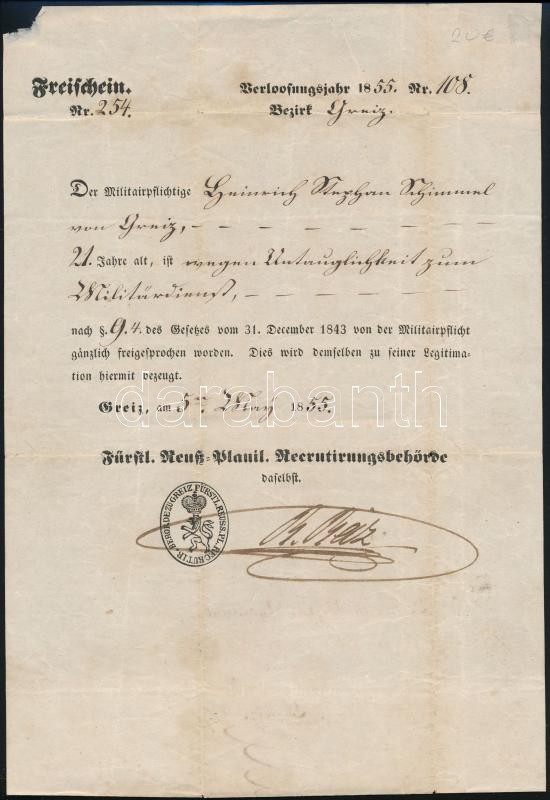 20 €
Freischein.
Nr. 254.
Verloosungsjahr 1855. Nr. 108.
Bezirk Greiz.
Der Militairpflichtige Heinrich Stephan Schimmel
von Greiz,
21. Jahre alt, ist wegen Untauglichkeit zum
Militärdienst,
nach §. 9.4. des Gesetzes vom 31. December 1843 von der Militairpflicht
gänzlich freigesprochen worden. Dies wird demselben zu seiner Legitima-
tion hiermit bezeugt.
darabanth
Greiz, am 5ten May 1855.
Fürstl. Reuß-Plauil. Recrutirungsbehörde
daselbst.
FÜRSTL. REUSS. PL. RECRUTIR. BEHÖRDE ZU GREIZ